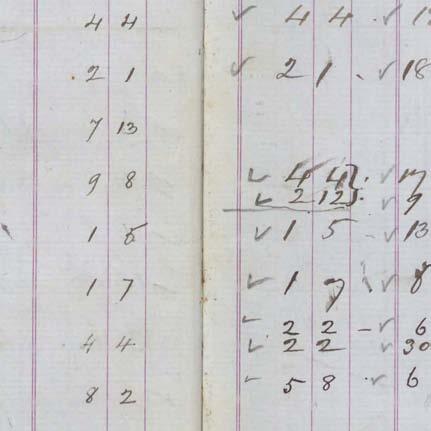 4 4
2 1
7 13
9 8
1 5
1 7
4 4
8 2
✓ 4 4 . ✓
✓ 2 1 . ✓ 18
✓ 4 4 } . ✓ 17
✓ 2 12 } . ✓ 9
✓ 1 5 - ✓ 13
✓ 1 7 . ✓ 8
✓ 2 2 - ✓ 6
✓ 2 2 ✓ 30
✓ 5 8 . ✓ 6